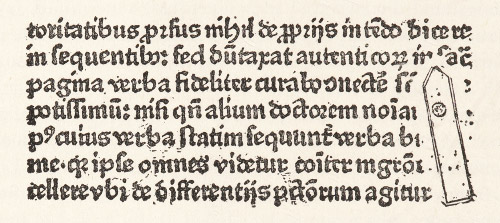 toritatibus pͬsus nihil de ꝓprijs intēdo dicere
in sequentibꝰ: sed dūtaxat autenticoꝝ in sac̄
pagina verba fideliter curabo ↄnectē
potissimū: nisi qn̄ alium doctorem noīa
pꝰ cuius verba statim sequunt̄ verba
me. qꝛ ipse omnes videtur cōiter
tellere vbi de differentijs pctōrum agitur